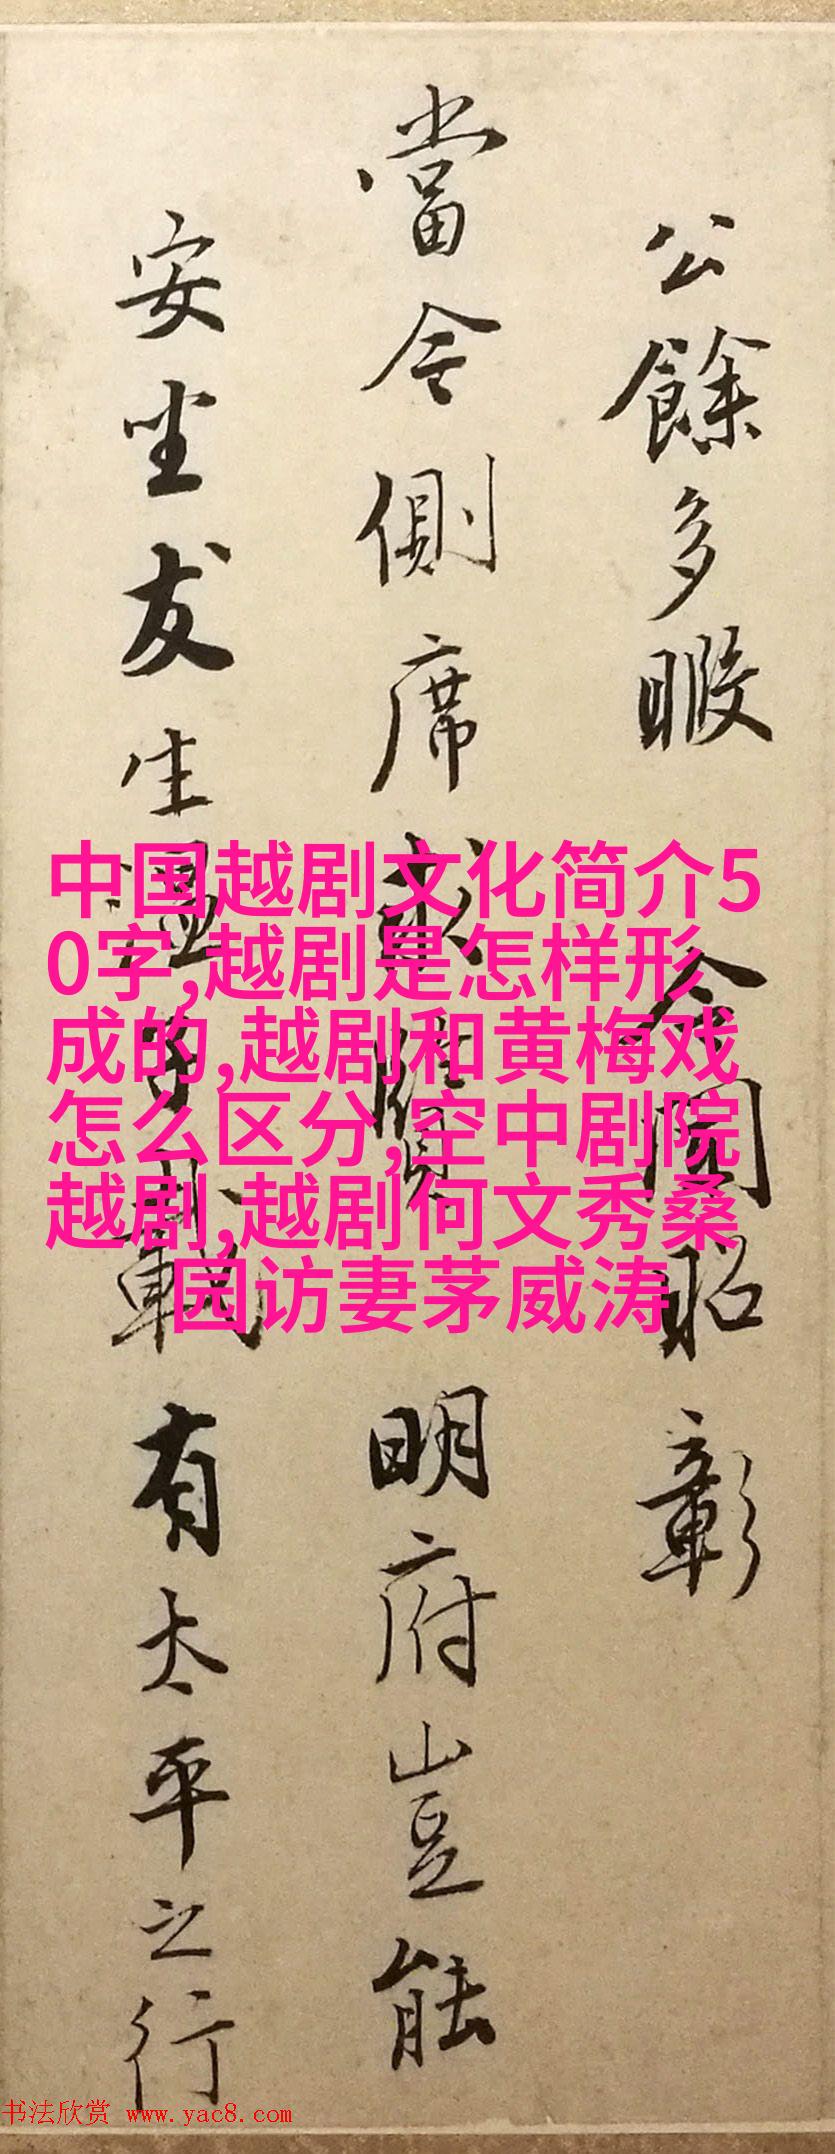 公餘多暇 令聞昭彰
當今側席求賢明府豈能
安坐友生溫等載有太平之行
中国越剧文化简介5
0字,越剧是怎样形
成的,越剧和黄梅戏
怎么区分,空中剧院
越剧,越剧何文秀桑
园访妻茅威涛
书法欣赏 www.yac8.com